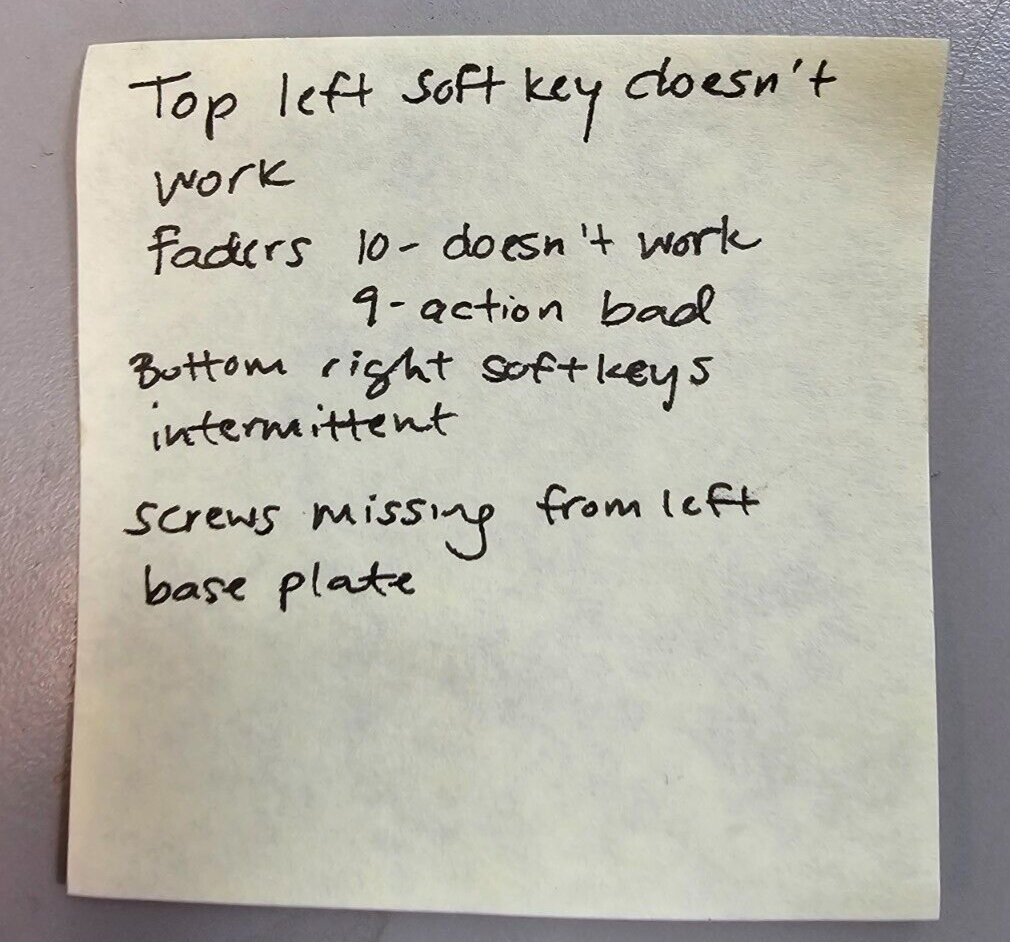 Top left soft key doesn't
work
faders 10- doesn't work
9- action bad
Bottom right softkeys
intermittent
screws missing from left
base plate